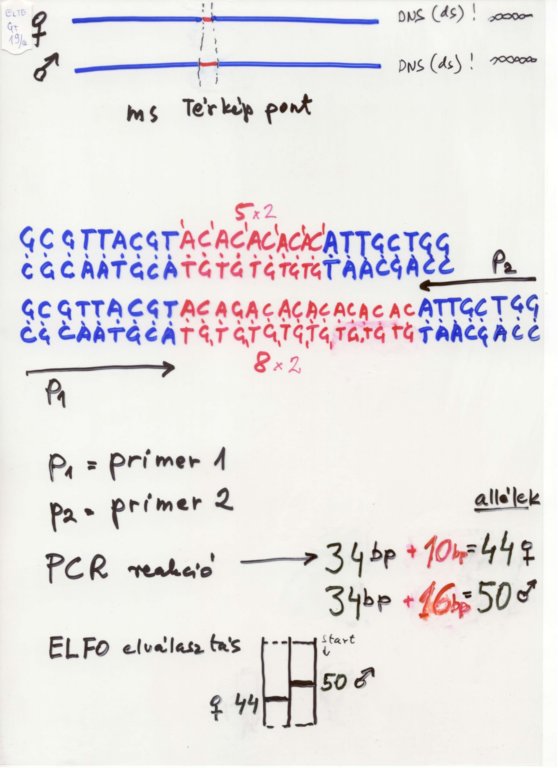 ELTE
GT
19/a
♀ DNS (ds) !
♂ DNS (ds) !
ms Térkép pont
5 x 2
GCGTTACGTACACACACACATTGCTGG
CGCAATGCATGTGTGTGTGTAACGACC
P2
GCGTTACGTACAGACACACACACACATTGCTGG
CGCAATGCATGTGTGTGTGTGTGTGTAACGACC
P1
8 x 2
P1 = primer 1
P2 = primer 2
allélek
PCR reakció → 34bp + 10bp = 44 ♀
34bp + 16bp = 50 ♂
ELFO elválasztás
start
↓
50 ♂
♀ 44